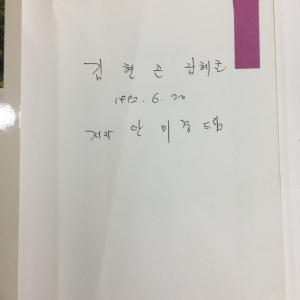 김 현 곤 김혜순
1992. 6. 20
저자 안 미 경 드림